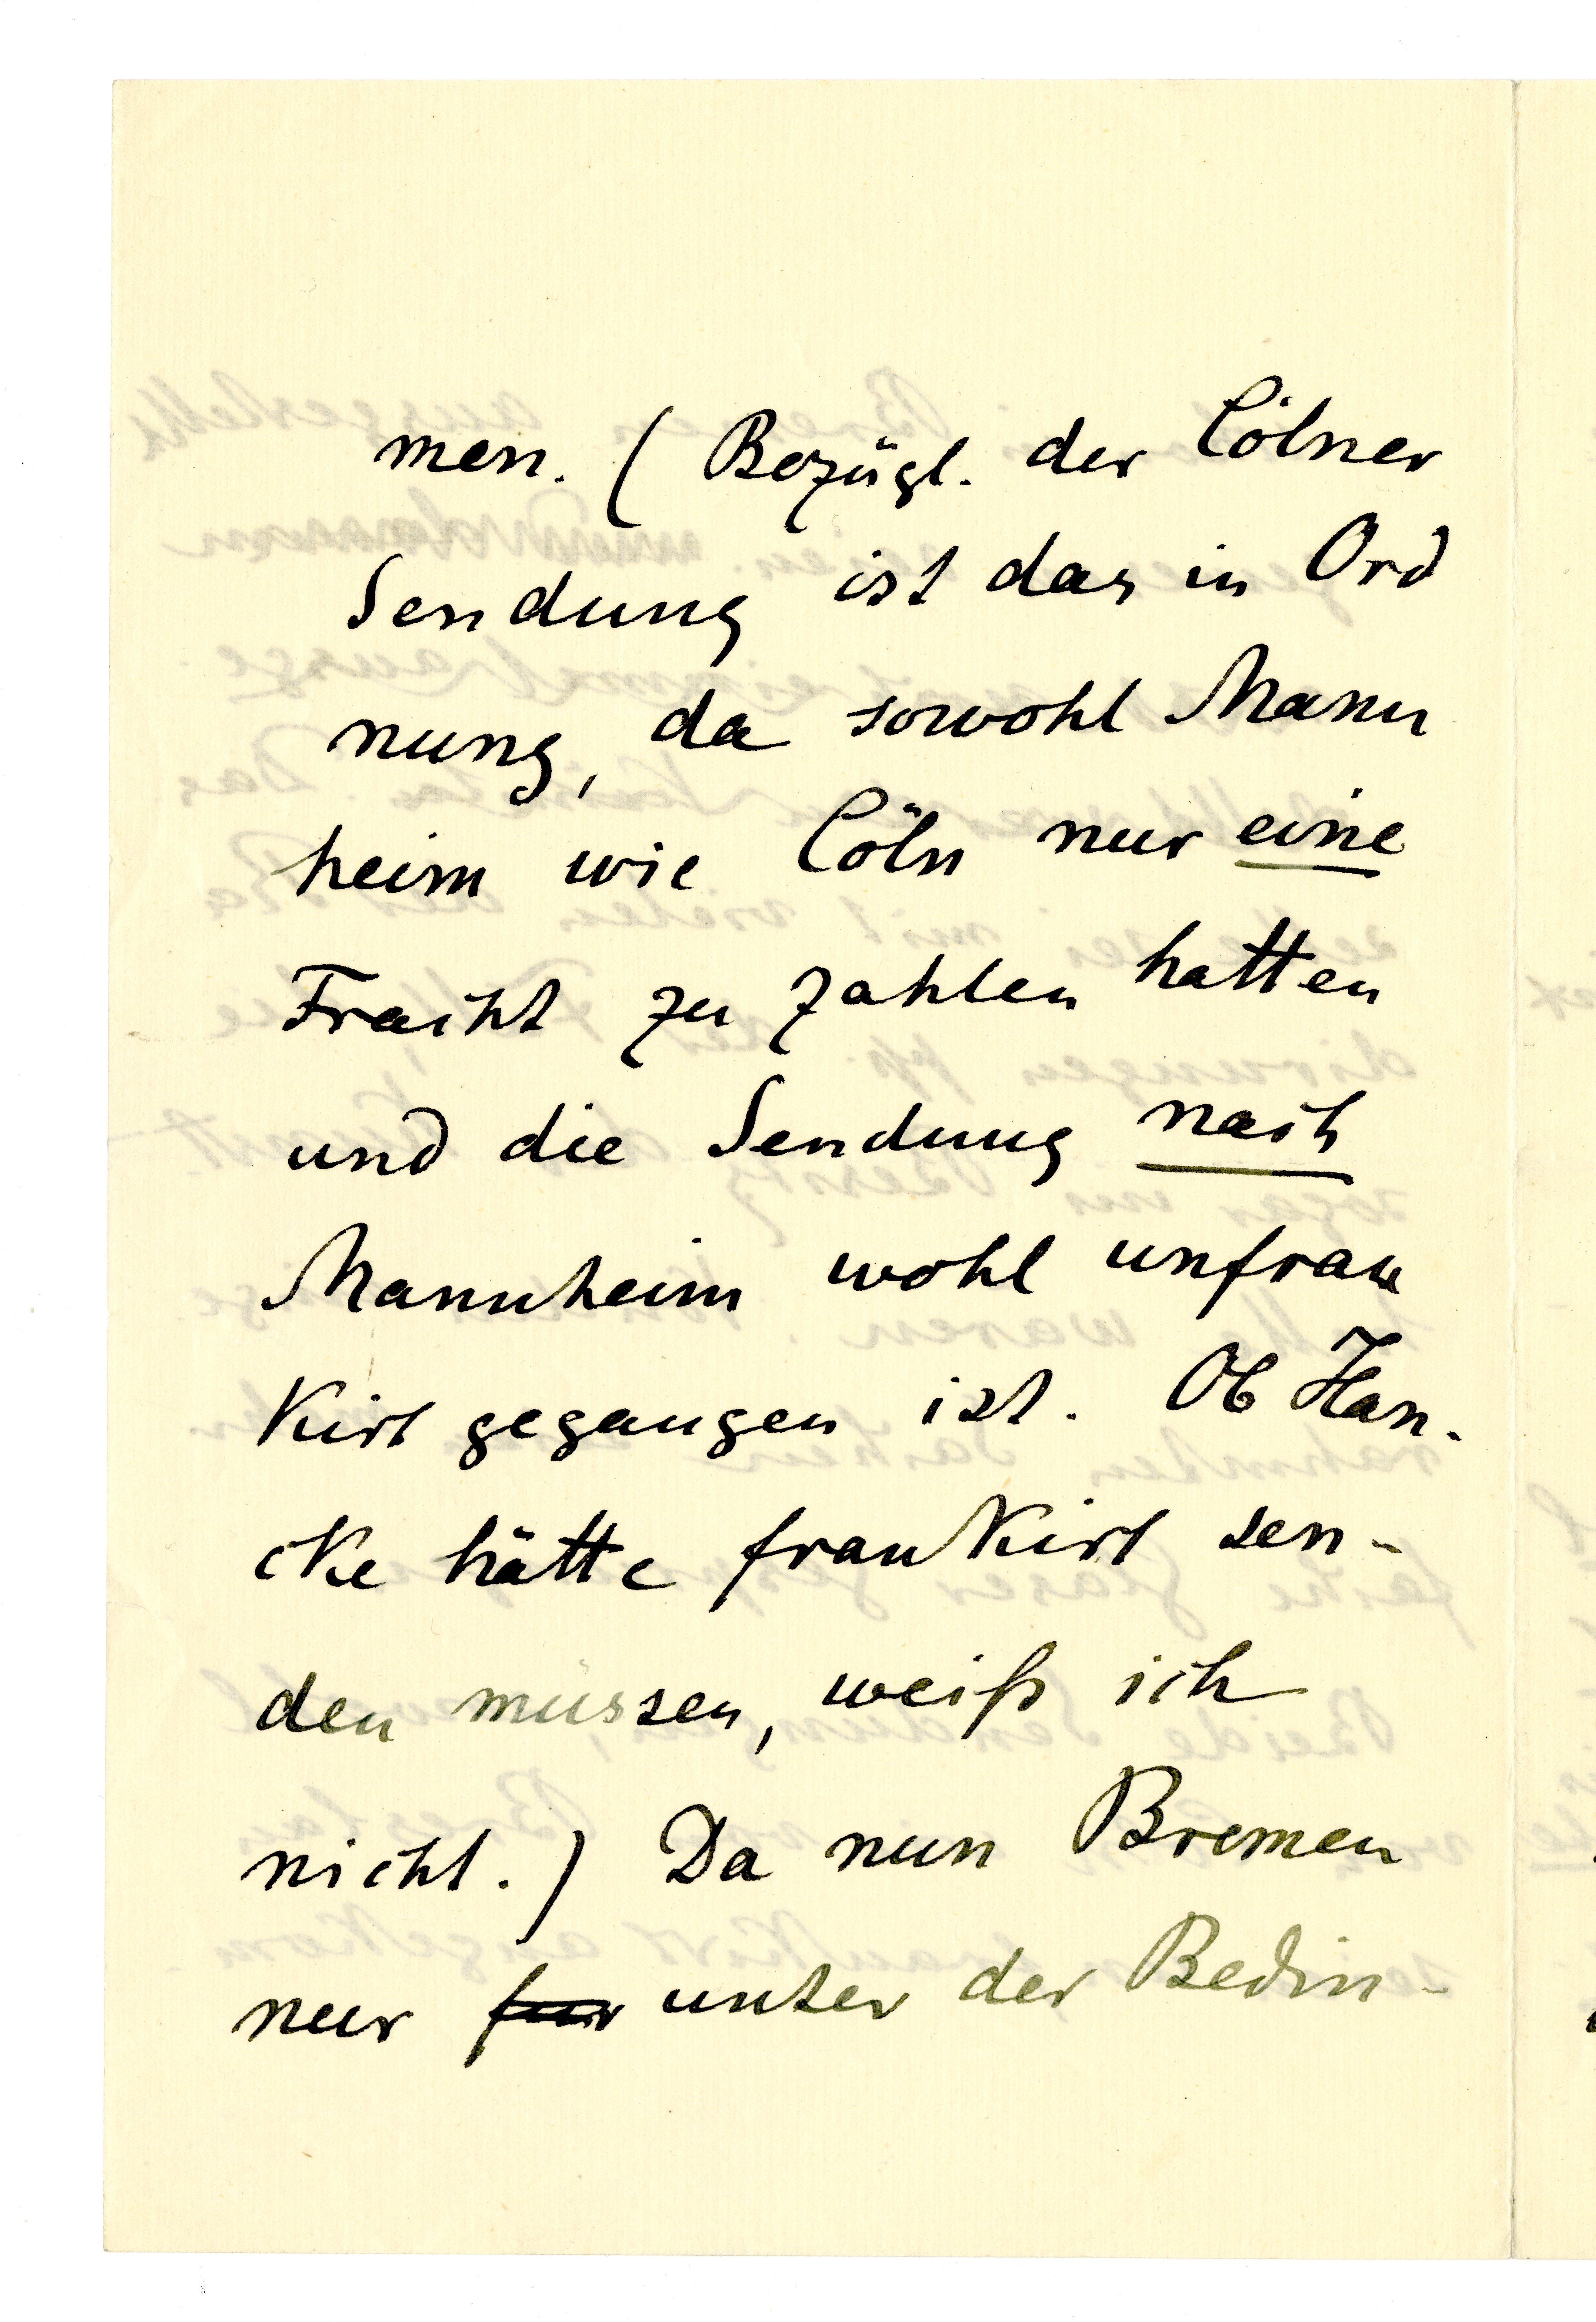 men. (Bezügl. der Cölner
Sendung ist das in Ord
nung, da sowohl Mann
heim wie Cöln nur eine
Fracht zu zahlen hatten
und die Sendung nach
Mannheim wohl unfran
kirt gegangen ist. Ob Han-
cke hätte frankirt sen-
den müssen, weiß ich
nicht.) Da nun Bremen
nur für unter der Bedin-